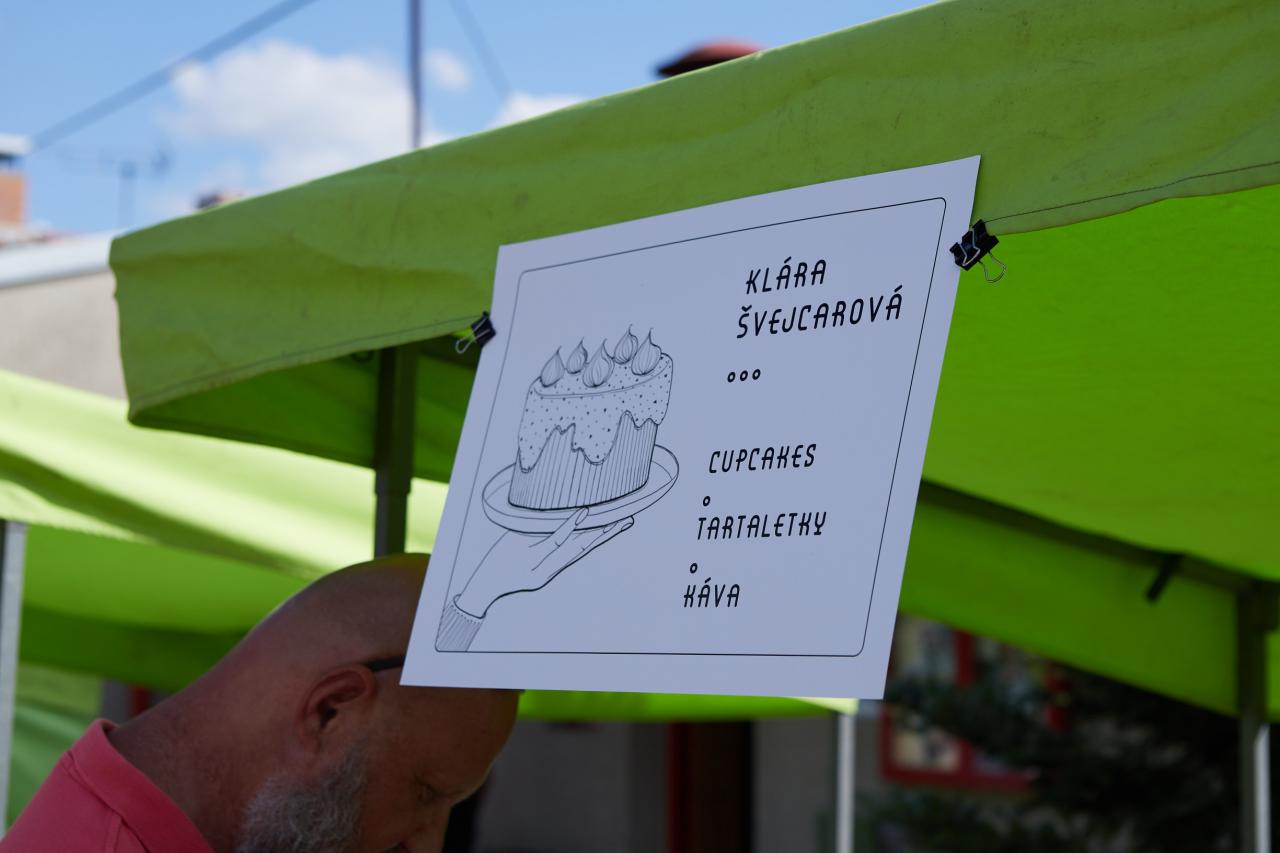 KLÁRA
ŠVEJCAROVÁ
CUPCAKES
TARTALETKY
KÁVA